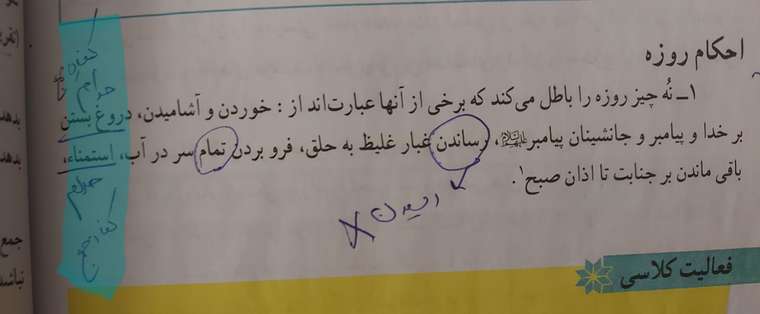 احکام روزه
۱ـ نُه چیز روزه را باطل می‌کند که برخی از آنها عبارت‌اند از : خوردن و آشامیدن، دروغ بستن
بر خدا و پیامبر و جانشینان پیامبر ﷺ، رساندن غبار غلیظ به حلق، فرو بردن تمام سر در آب، استمناء،
باقی ماندن بر جنابت تا اذان صبح۱.
رسیدن
حرام
حرام
کفاره جمع
فعالیت کلاسی
بدهد
بدهد
جمع
نباشد